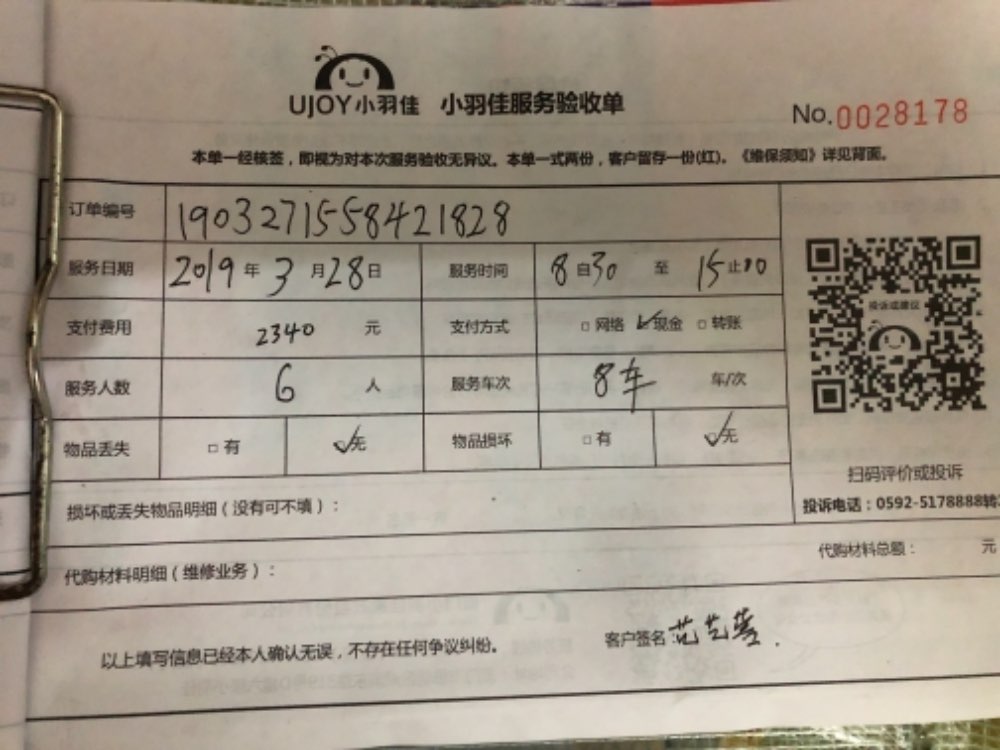 UJOY小羽佳 小羽佳服务验收单
No.0028178
本单一经核签，即视为对本次服务验收无异议。本单一式两份，客户留存一份(红)。《维保须知》详见背面。
订单编号 1903271558421828
服务日期 2019年3月28日 服务时间 8自30至15止00
支付费用 2340元 支付方式 □网络 ✓现金 □转账
服务人数 6人 服务车次 8车 车/次
物品丢失 □有 ✓无 物品损坏 □有 ✓无
投诉或建议
扫码评价或投诉
投诉电话：0592-5178888转
损坏或丢失物品明细（没有可不填）：
代购材料明细（维修业务）：
代购材料总额： 元
以上填写信息已经本人确认无误，不存在任何争议纠纷。
客户签名：范艺